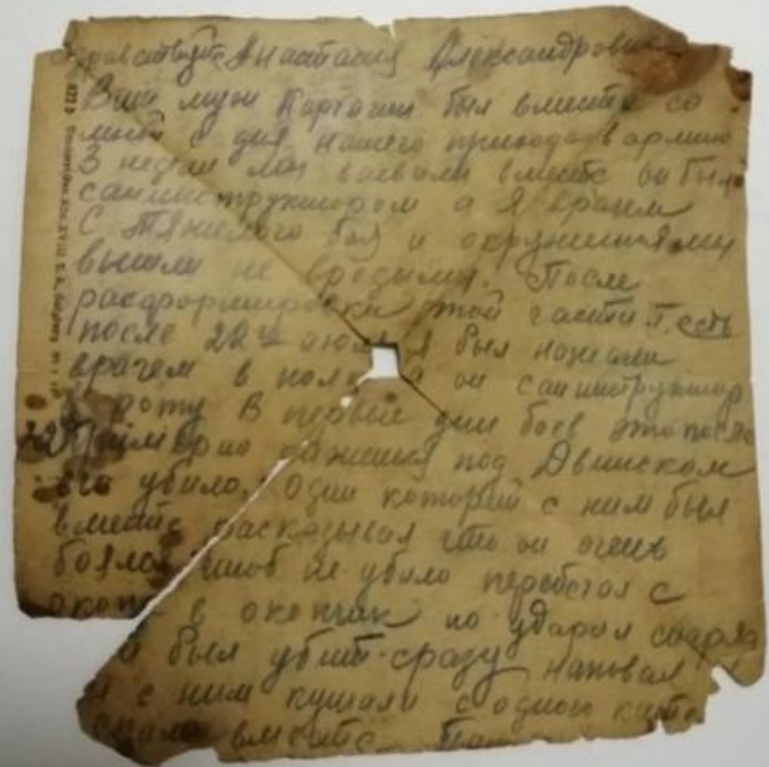 Здравствуйте Анастасия Александровна
Ваш муж Карташ был вместе со
мной с дня нашего прихода в армию
3 недели мы воевали вместе он был
санинструктором а я врачем
С тяжелого боя и окружения мы
вышли не вредимы. После
расформировки этой части т. есть
после 22го июля я был назначен
врачем в полк а он санинструктор
в роту В первые дни боев это после
22 примерно сажения под Двинском
его убило. Один который с ним был
вместе расказывал что он очень
боялся чтоб не убило перебегал с
окопа в окопчик но ударил снаряд
и был убит сразу наповал
я с ним кушали с одного
спали вместе